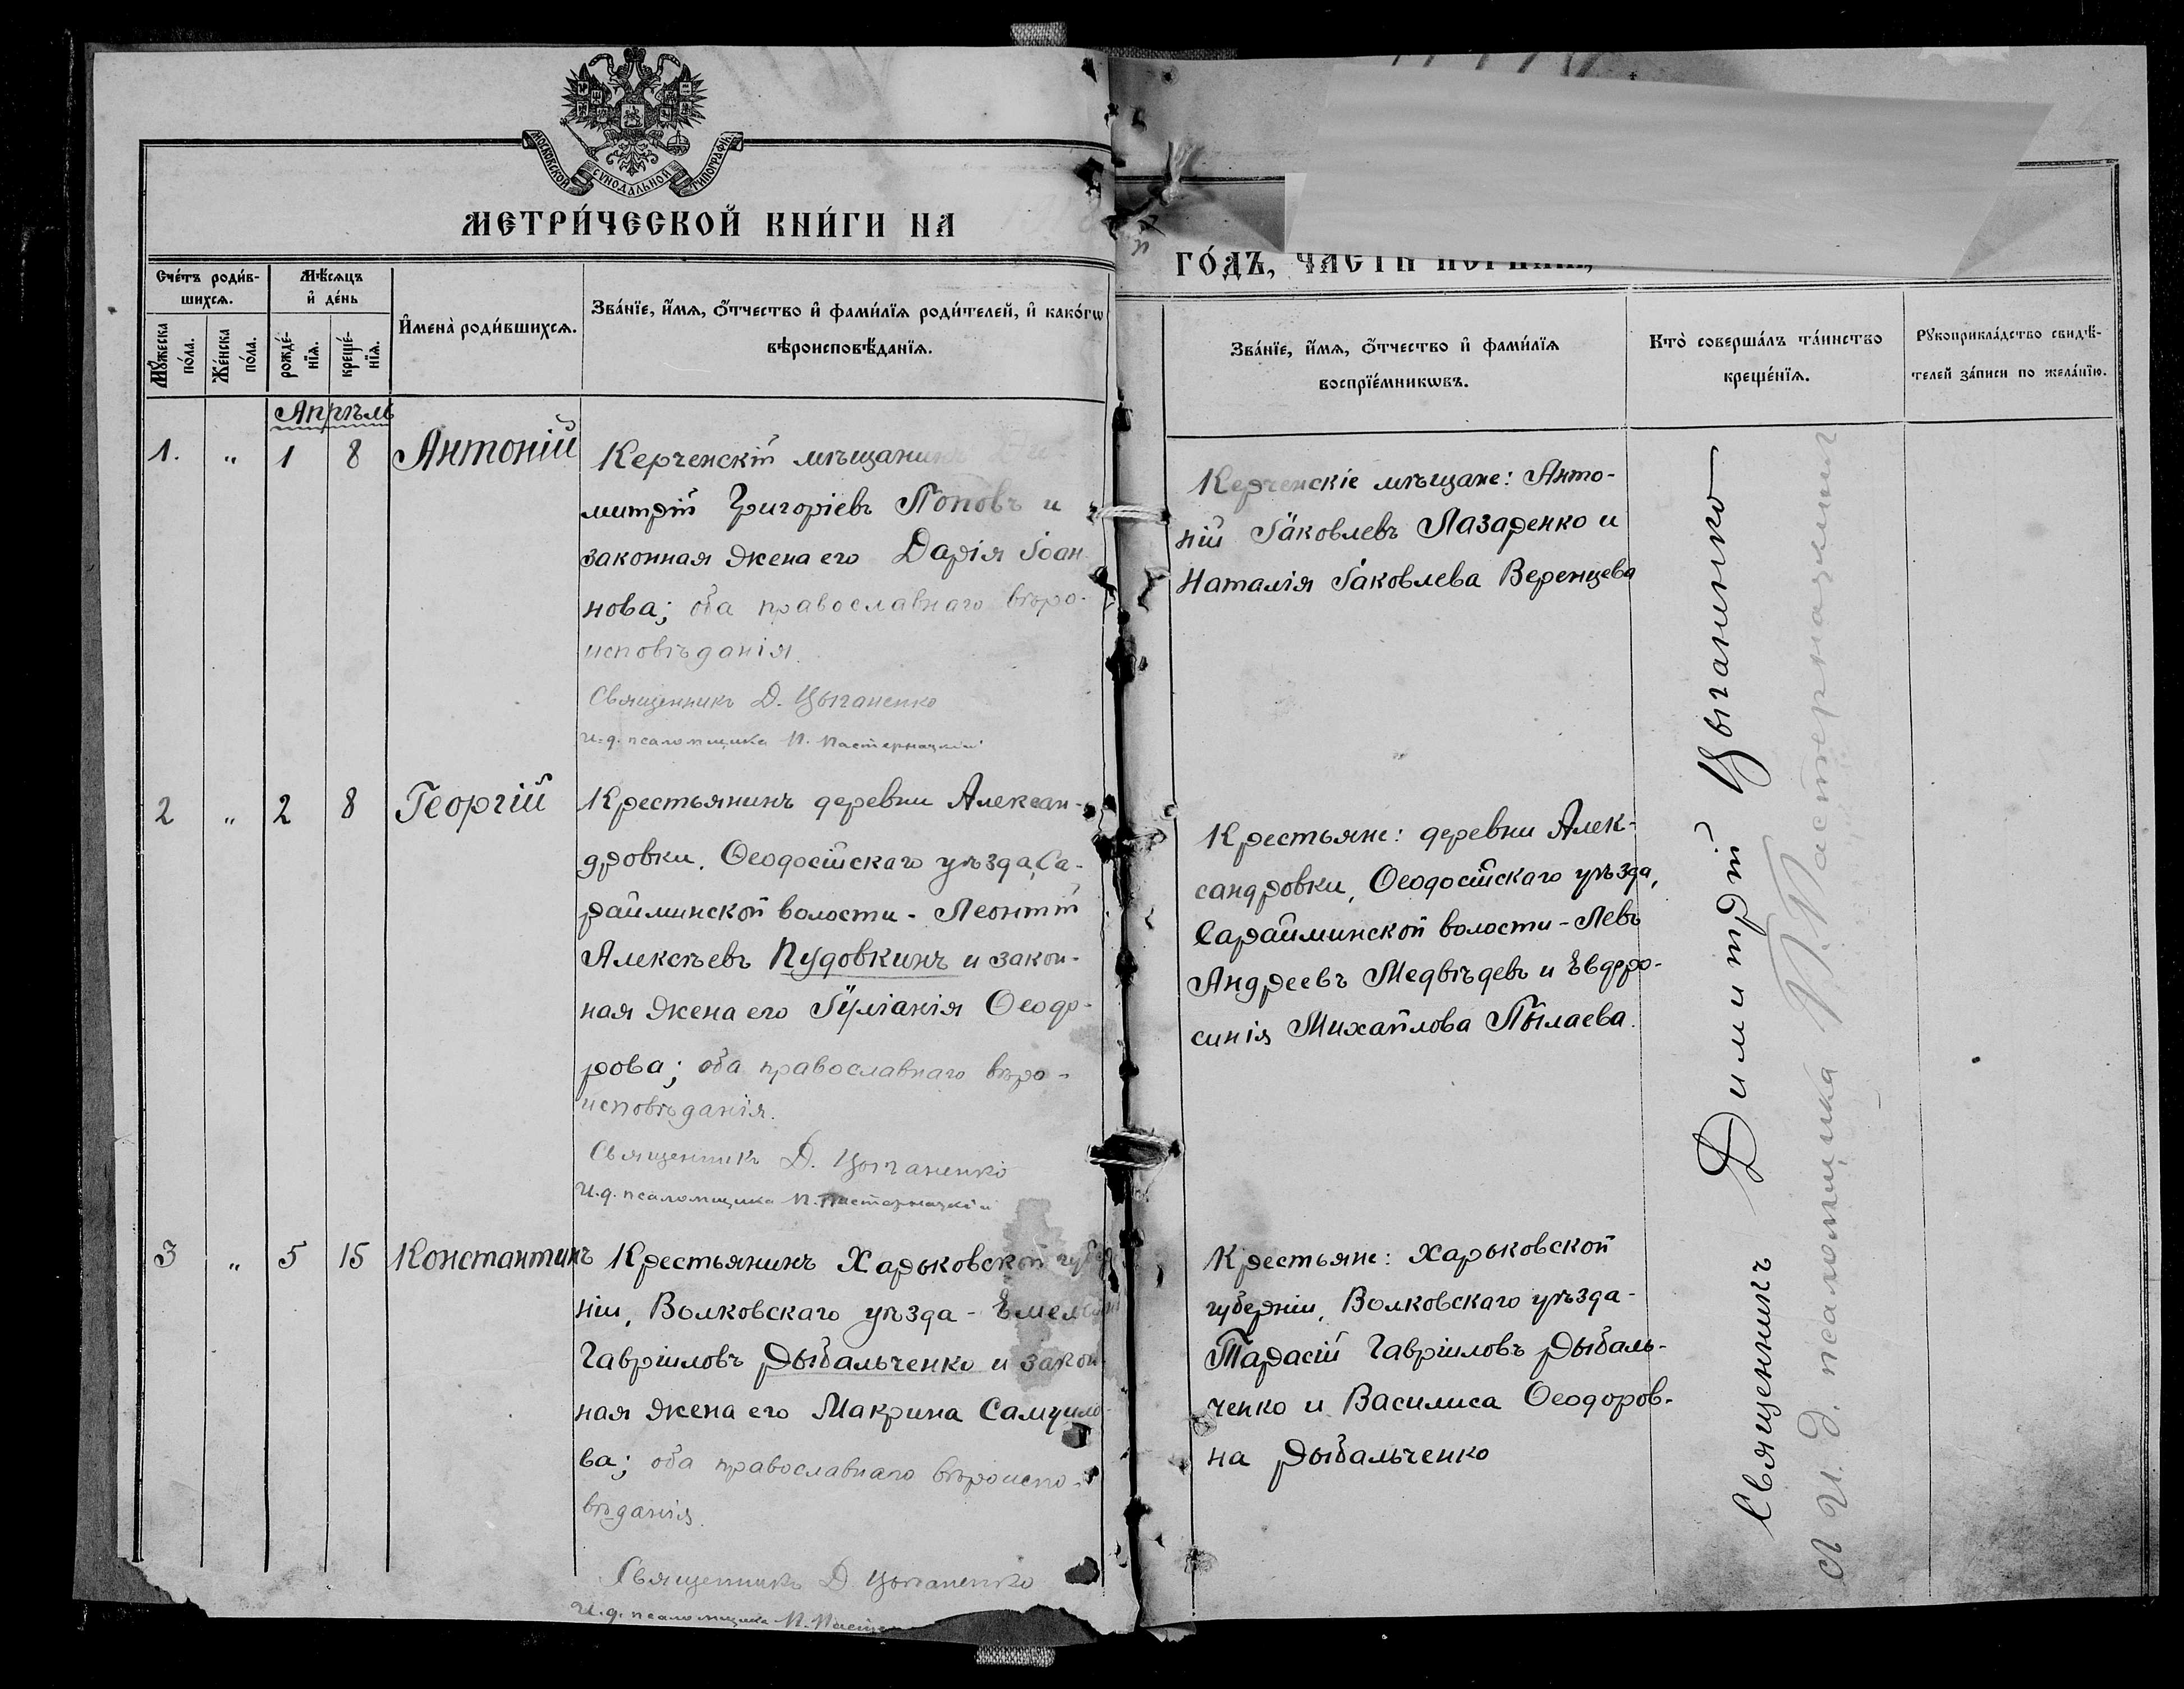 МОСКОВСКОЙ СУНОДАЛЬНОЙ ТИПОГРАФІИ
МЕТРИ́ЧЕСКОЙ КНИ́ГИ НА
ГО́ДЪ, ЧА́СТИ
Сче́тъ роди́в-
шихсѧ.
Мѣ́сѧцъ
и҆ де́нь
Мꙋ́жеска
по́ла.
Же́нска
по́ла.
рожде́-
нїѧ.
креще́-
нїѧ.
И҆мена̀ роди́вшихсѧ.
Зва́нїе, и҆́мѧ, ѻ҆́тчество и҆ фами́лїѧ роди́телей, и҆ како́гѡ
вѣроисповѣ́данїѧ.
Зва́нїе, и҆́мѧ, ѻ҆́тчество и҆ фами́лїѧ
воспрїе́мникѡвъ.
Кто̀ соверша́лъ та́инство
креще́нїѧ.
Рꙋкоприкла́дство свидѣ́-
телей за́писи по жела́нїю.
Апрѣль
1. „ 1 8 Антоній
Керченскій мѣщанинъ Ди-
митрій Григоріевъ Поповъ и
законная жена его Дарія Іоан
нова; оба православнаго вѣро-
исповѣданія.
Священникъ Д. Цыганенко
И.д. псаломщика П. Пастернацкій
Керченскіе мѣщане: Анто-
ній Іаковлевъ Лазаренко и
Наталія Іаковлева Веренцева
2 „ 2 8 Георгій
Крестьянинъ деревни Алексан-
дровки, Ѳеодосійскаго уѣзда, Са-
райминской волости - Леонтій
Алексѣевъ Пудовкинъ и закон-
ная жена его Іуліанія Ѳеодо-
рова; оба православнаго вѣро-
исповѣданія.
Священникъ Д. Цыганенко
И.д. псаломщика П. Пастернацкій
Крестьяне: деревни Алек-
сандровки, Ѳеодосійскаго уѣзда,
Сарайминской волости - Левъ
Андреевъ Медвѣдевъ и Евфро-
синія Михайлова Пылаева.
3 „ 5 15 Константинъ
Крестьянинъ Харьковской губер
ніи, Волковскаго уѣзда - Емельянъ
Гавріиловъ Рыбальченко и закон-
ная жена его Макрина Самуило-
ва; оба православнаго вѣроиспо-
вѣданія.
Священникъ Д. Цыганенко
И.д. псаломщика П.
Крестьяне: Харьковской
губерніи, Волковскаго уѣзда -
Тарасій Гавріиловъ Рыбаль-
ченко и Василиса Ѳеодоров-
на Рыбальченко
Священникъ Димитрій Цыганенко
И. д. псаломщика П. Пастернацкій